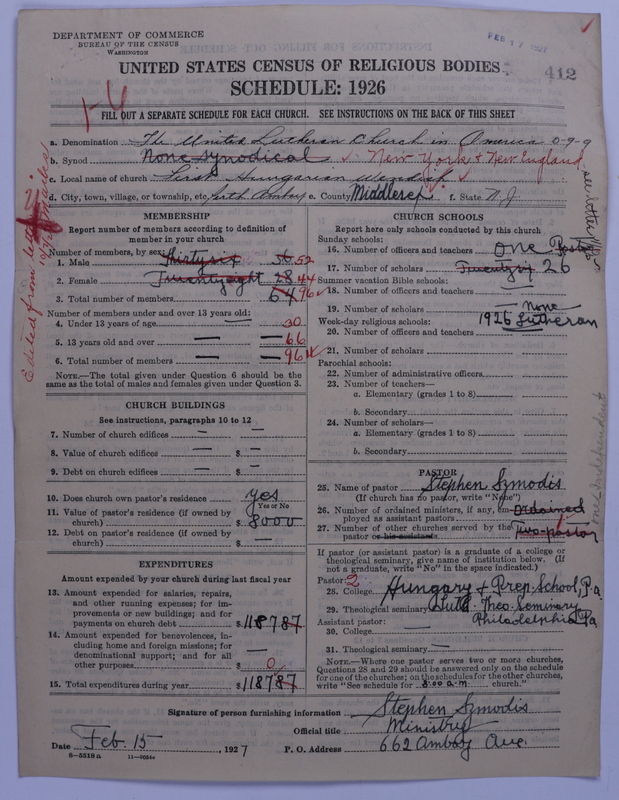 DEPARTMENT OF COMMERCE
BUREAU OF THE CENSUS
WASHINGTON
FEB 17 1927
UNITED STATES CENSUS OF RELIGIOUS BODIES
412
SCHEDULE: 1926
1-4
FILL OUT A SEPARATE SCHEDULE FOR EACH CHURCH. SEE INSTRUCTIONS ON THE BACK OF THIS SHEET
a. Denomination The United Lutheran Church in America 0-9-9
b. Synod None synodical New York & New England
c. Local name of church First Hungarian Wendish
d. City, town, village, or township, etc. Perth Amboy e. County Middlesex f. State N.J.
MEMBERSHIP
Report number of members according to definition of
member in your church
Number of members, by sex:
1. Male Thirty six 36 52
2. Female Twenty eight 28 44
3. Total number of members 64 96
Number of members under and over 13 years old:
4. Under 13 years of age 30
5. 13 years old and over — 66
6. Total number of members — 96
NOTE.—The total given under Question 6 should be the
same as the total of males and females given under Question 3.
CHURCH BUILDINGS
See instructions, paragraphs 10 to 12
7. Number of church edifices —
8. Value of church edifices — $ —
9. Debt on church edifices — $ —
10. Does church own pastor's residence yes
Yes or No
11. Value of pastor's residence (if owned by
church) $ 8000
12. Debt on pastor's residence (if owned by
church) — $ —
EXPENDITURES
Amount expended by your church during last fiscal year
13. Amount expended for salaries, repairs,
and other running expenses; for im-
provements or new buildings; and for
payments on church debt $ 1187 87
14. Amount expended for benevolences, in-
cluding home and foreign missions; for
denominational support; and for all
other purposes $ 0
15. Total expenditures during year $ 1187 87
CHURCH SCHOOLS
Report here only schools conducted by this church
Sunday schools:
16. Number of officers and teachers one Pastor
17. Number of scholars Twenty six 26
Summer vacation Bible schools:
18. Number of officers and teachers —
19. Number of scholars — none
Week-day religious schools: 1926 Lutheran
20. Number of officers and teachers
21. Number of scholars
Parochial schools:
22. Number of administrative officers
23. Number of teachers—
a. Elementary (grades 1 to 8)
b. Secondary
24. Number of scholars—
a. Elementary (grades 1 to 8)
b. Secondary
PASTOR
25. Name of pastor Stephen Szmodis
(If church has no pastor, write "None")
26. Number of ordained ministers, if any, em-
ployed as assistant pastors Ordained
27. Number of other churches served by the
pastor or his assistants Two-pastor
If pastor (or assistant pastor) is a graduate of a college or
theological seminary, give name of institution below. (If
not a graduate, write "No" in the space indicated.)
Pastor: 2
28. College Hungary & Prep. School, Pa.
29. Theological seminary Luth. Theo. Seminary
Assistant pastor: Philadelphia Pa
30. College
31. Theological seminary —
NOTE.—Where one pastor serves two or more churches,
Questions 28 and 29 should be answered only on the schedule
for one of the churches; on the schedules for the other churches,
write "See schedule for church."
Signature of person furnishing information Stephen Szmodis
Official title Ministry
Date Feb. 15, 1927 P. O. Address 662 Amboy Ave.
8-5518a